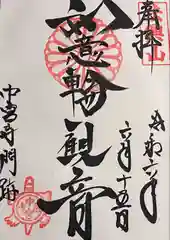 奉拝
令和六年
六月十五日
如意輪観音
中宮寺門跡